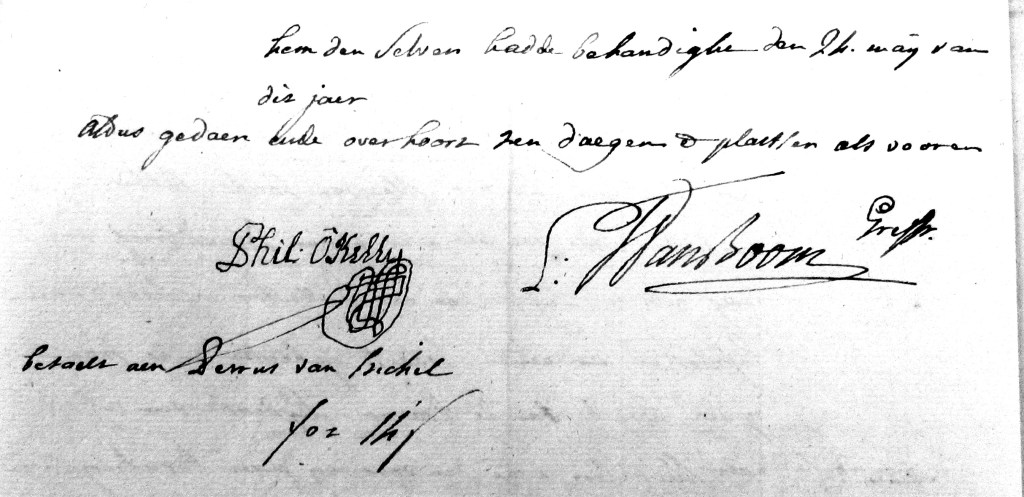 hem den selven hadde behandighe den 24. maÿ van
dit jaer
aldus gedaen ende overhoort ten daegen & plaetsen als vooren
Phil: ÔKelly
L: VanBoom Greffr.
betaelt aen Petrus van